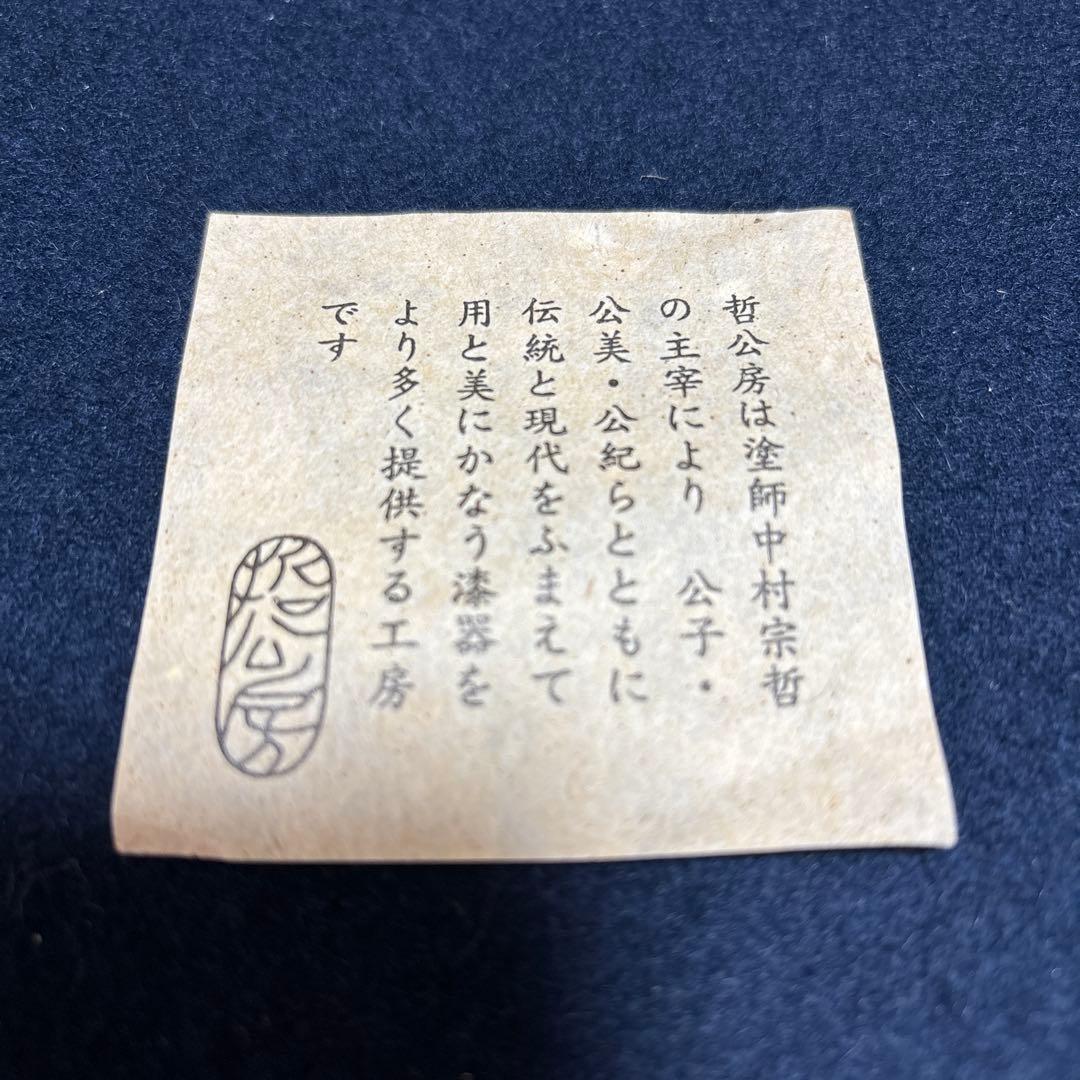 哲公房は塗師中村宗哲
の主宰により　公子・
公美・公紀らとともに
伝統と現代をふまえて
用と美にかなう漆器を
より多く提供する工房
です
哲公房